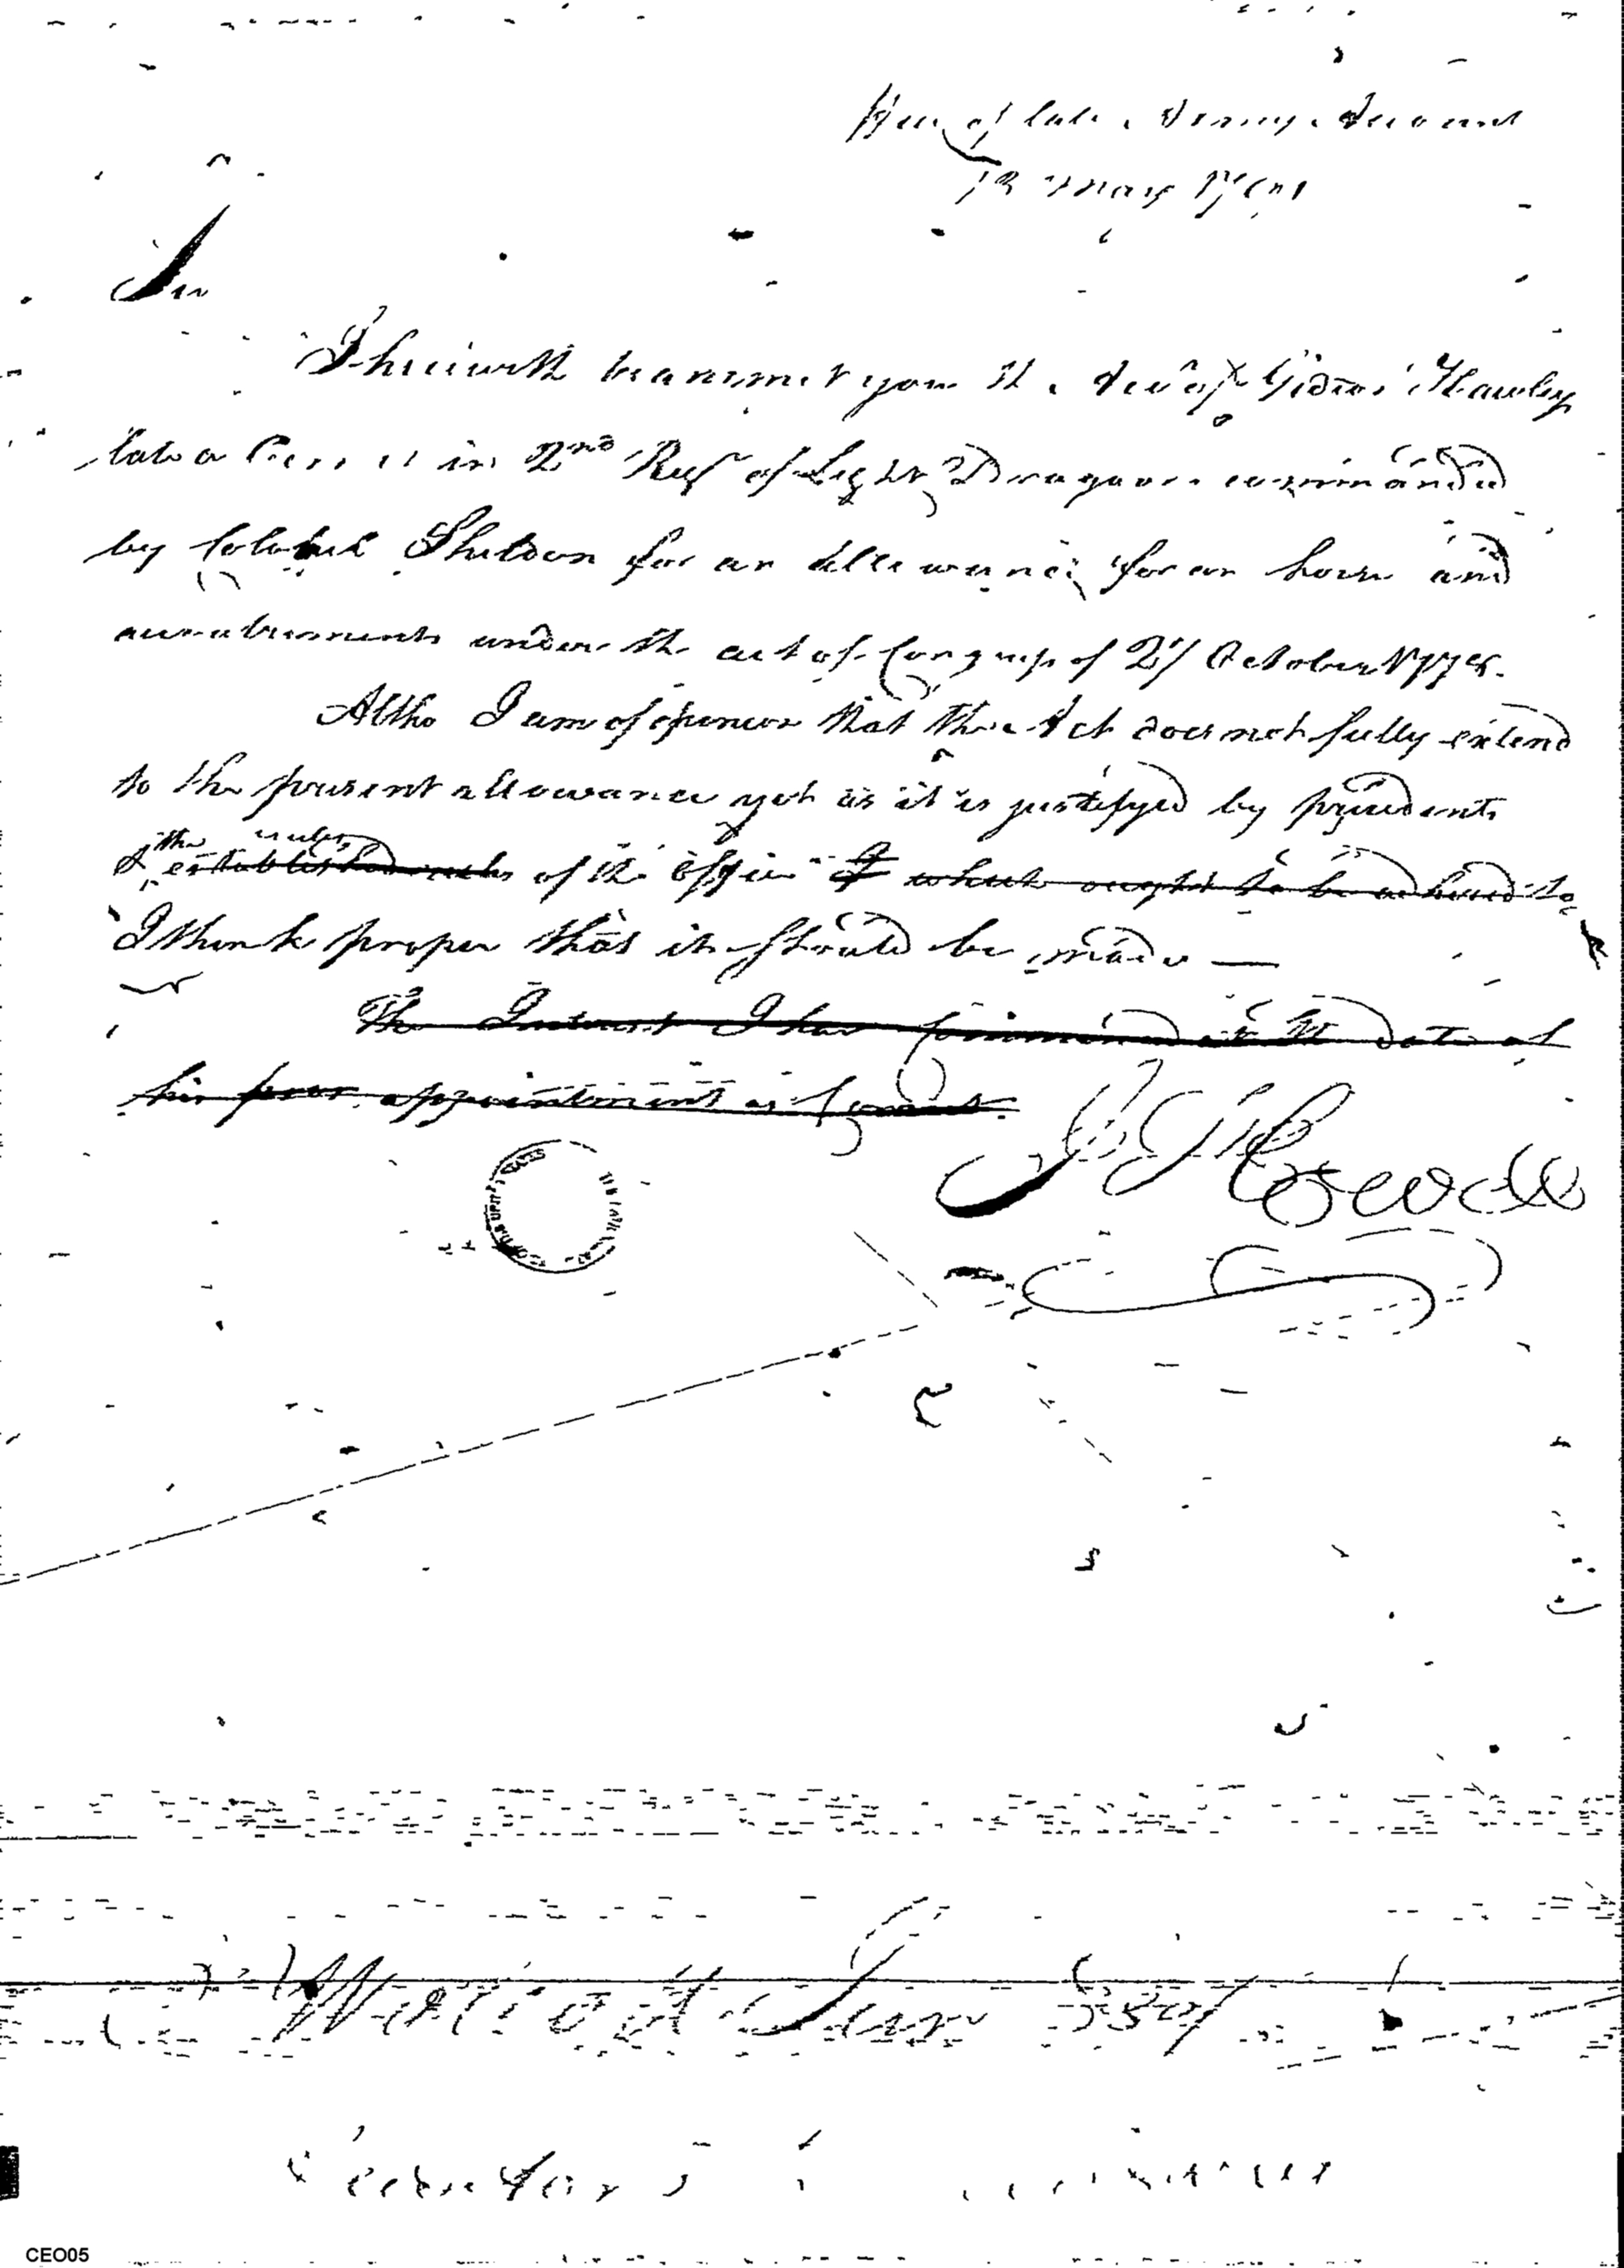 Office of late Army Accounts
13 May 1791
Sir
I herewith transmit you the Accot of Gideon Hawley
late a Cornet in 2nd Regt of Light Dragoons commanded
by Colonel Sheldon for an allowance for an horse and
accoutrements under the act of Congress of 27 October 1778.
Altho I am of opinion that the Act does not fully extend
to the present allowance yet as it is justifyed by precedents
the rules
& established rules of the office & which ought to be adhered to
I think proper that it should be made —
The Interest I have commenced at the date of
his appointment as Cornet.
Howell
Secretary
CEO05